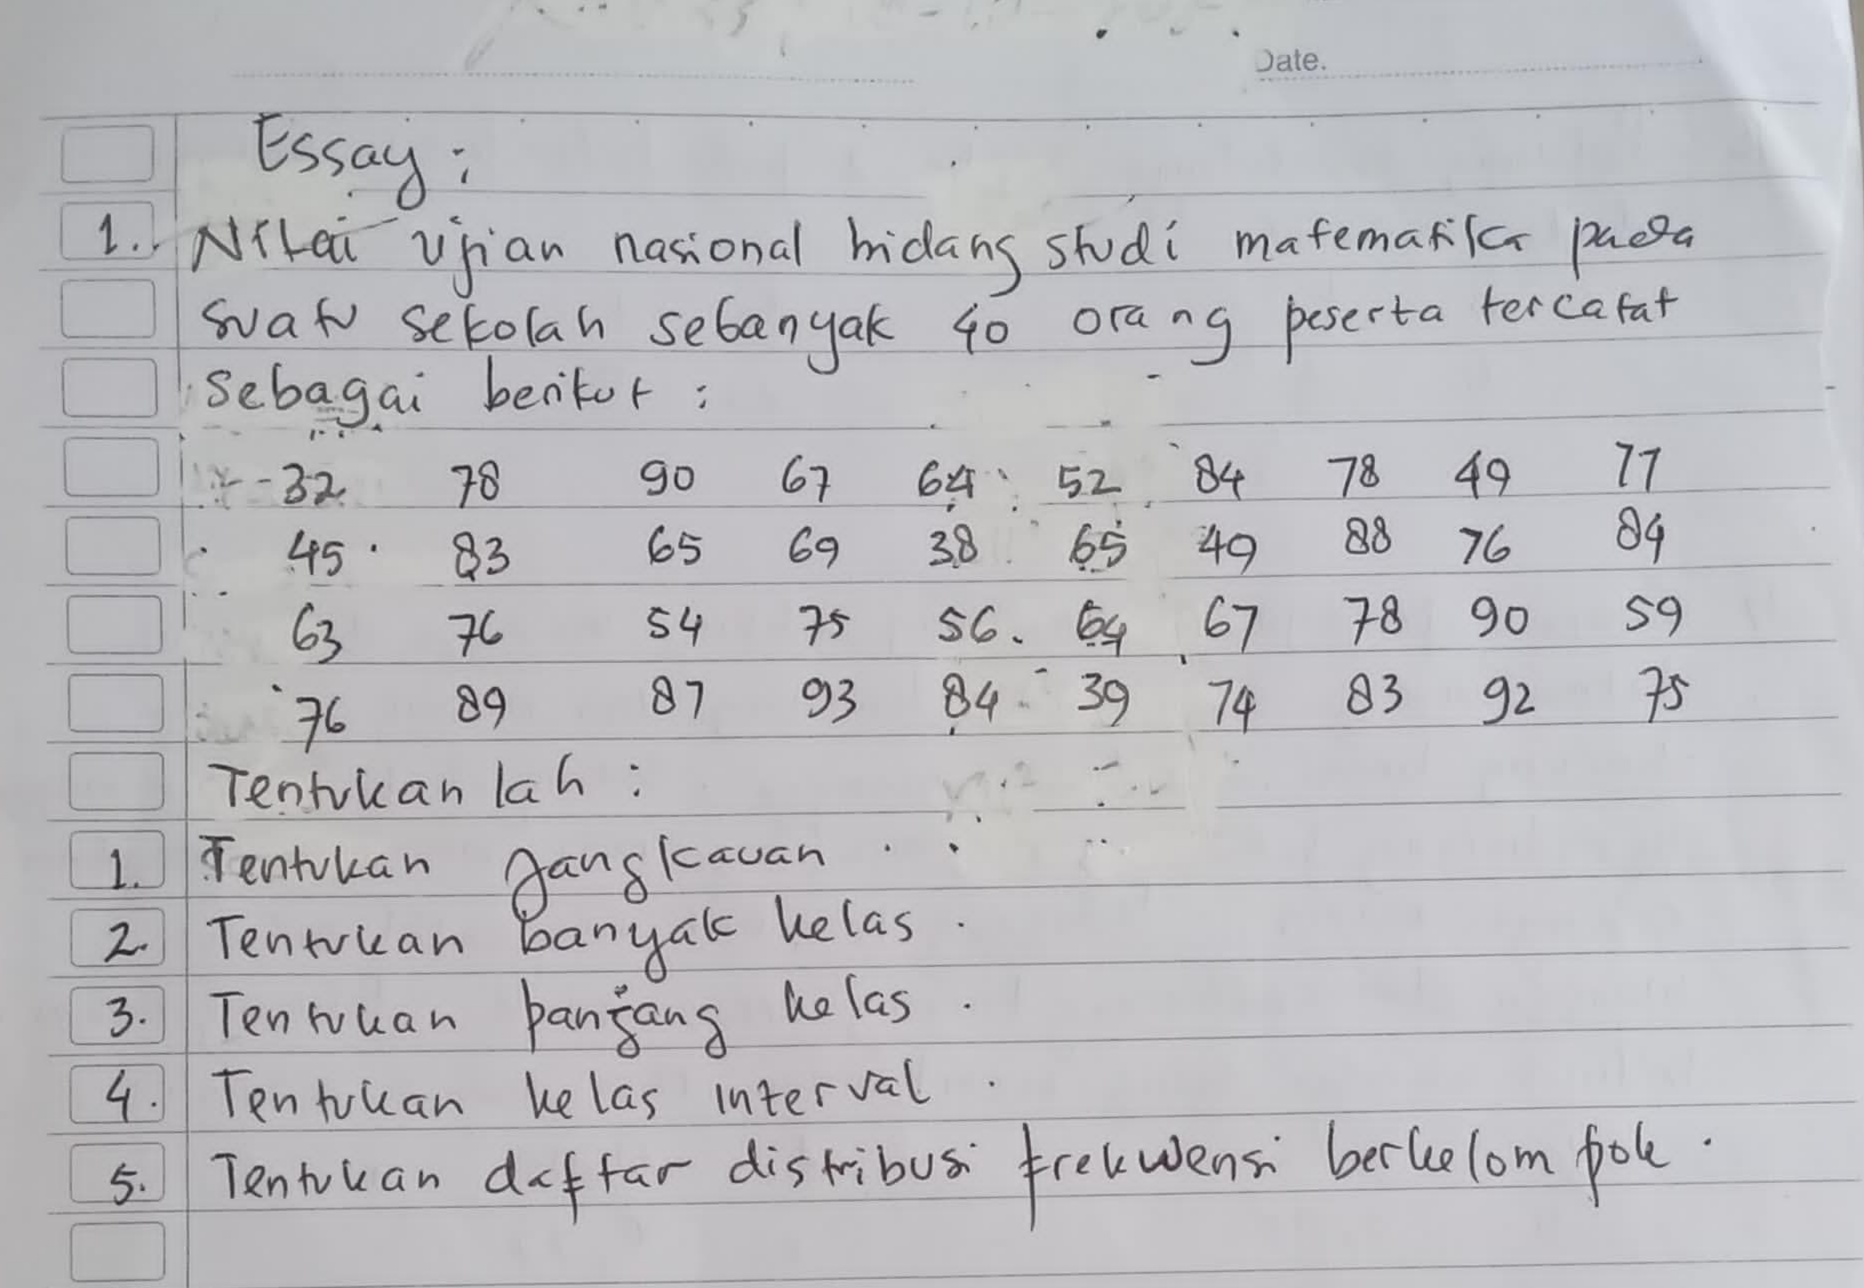 Date.
Essay :
1. Nilai ujian nasional bidang studi matematika pada
suatu sekolah sebanyak 40 orang peserta tercatat
sebagai berikut :
32 78 90 67 64 52 84 78 49 77
45 83 65 69 38 65 49 88 76 84
63 76 54 75 56. 64 67 78 90 59
76 89 87 93 84 39 74 83 92 75
Tentukan lah :
1. Tentukan jangkauan .
2. Tentukan banyak kelas .
3. Tentukan panjang kelas .
4. Tentukan kelas interval .
5. Tentukan daftar distribusi frekwensi berkelompok .